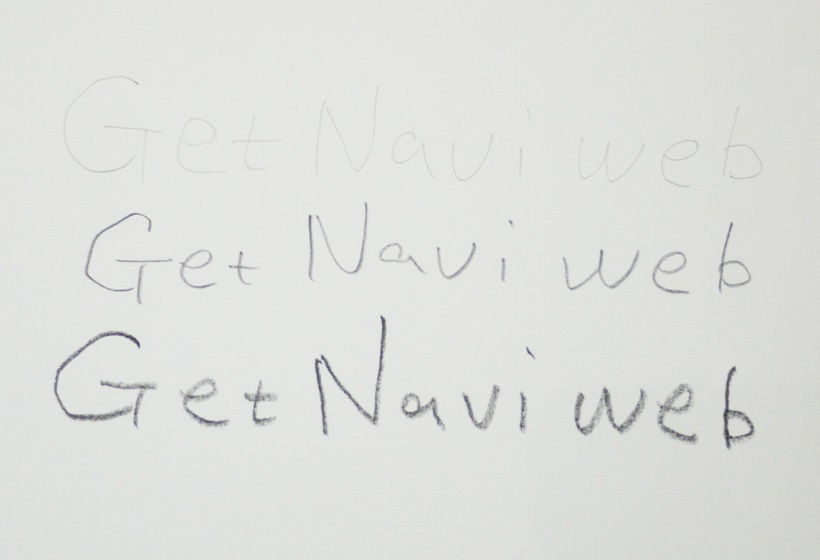 Get Navi web
Get Navi web
Get Navi web